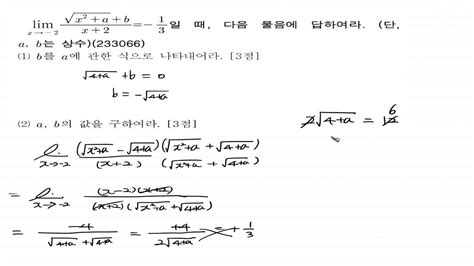 lim x→-2 (√(x²+a)+b)/(x+2) = -1/3 일 때, 다음 물음에 답하여라. (단,
a, b는 상수)(233066)
(1) b를 a에 관한 식으로 나타내어라. [3점]
√(4+a) + b = 0
b = -√(4+a)
(2) a, b의 값을 구하여라. [3점]
l. x→-2 (√(x²+a) - √(4+a))(√(x²+a) + √(4+a)) / (x+2)(√(x²+a) + √(4+a))
= l. x→-2 (x-2)(x+2) / (x+2)(√(x²+a) + √(4+a))
= -4/(√(4+a) + √(4+a)) = +4/(2√(4+a)) = +1/3
2√(4+a) = 12 6